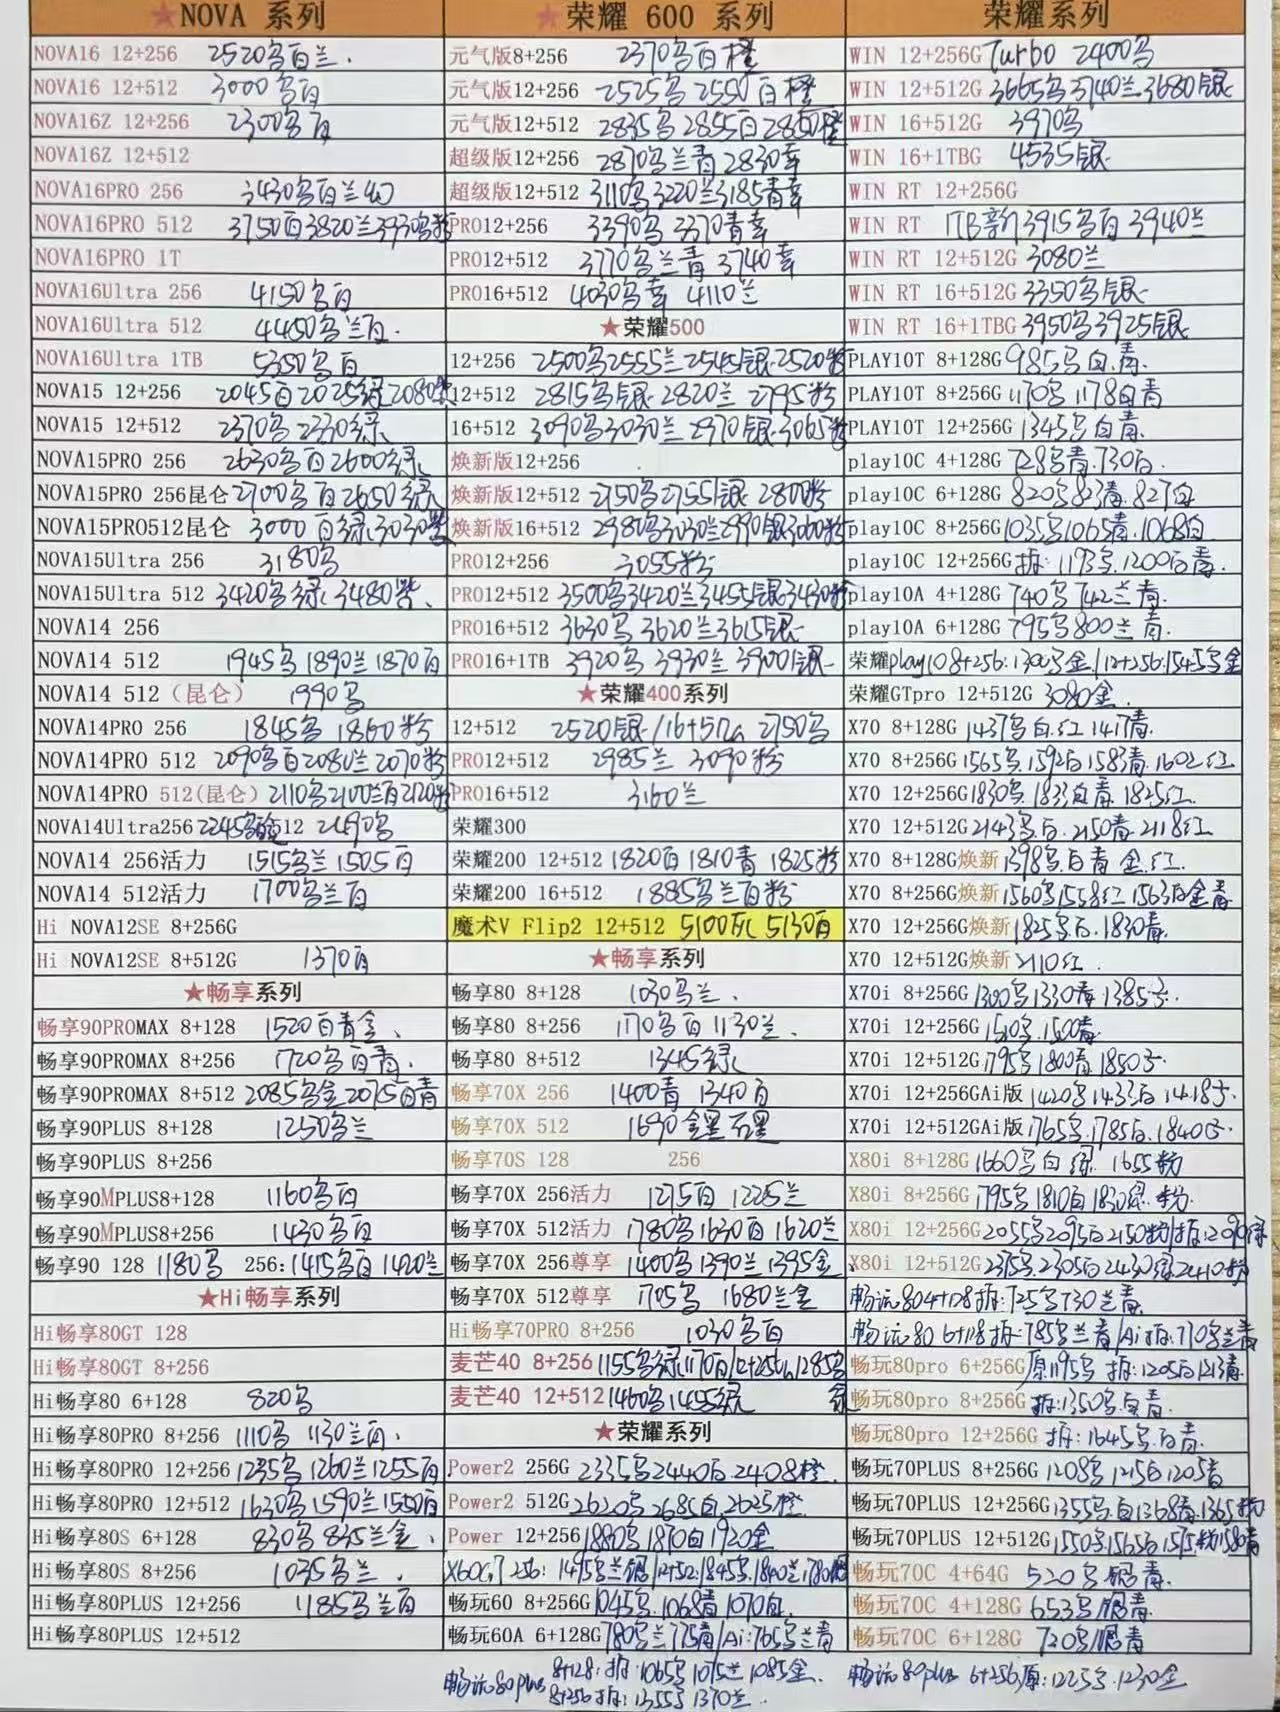 ★NOVA 系列
NOVA16 12+256 2520鸟白兰.
NOVA16 12+512 3000鸟白
NOVA16Z 12+256 2300鸟白
NOVA16Z 12+512
NOVA16PRO 256 3430鸟白兰幻
NOVA16PRO 512 3750白3820兰3930鸟粉
NOVA16PRO 1T
NOVA16Ultra 256 4150鸟白
NOVA16Ultra 512 4450鸟兰白.
NOVA16Ultra 1TB 5350鸟白
NOVA15 12+256 2045白2025绿2080紫
NOVA15 12+512 2370鸟 2330绿
NOVA15PRO 256 2630鸟白2600绿
NOVA15PRO 256昆仑 2700鸟白2650绿
NOVA15PRO512昆仑 3000白绿3030
NOVA15Ultra 256 3180鸟
NOVA15Ultra 512 3420鸟绿 3480紫、
NOVA14 256
NOVA14 512 1945鸟 1890兰 1870白
NOVA14 512（昆仑） 1990鸟
NOVA14PRO 256 1845鸟 1860粉
NOVA14PRO 512 2090鸟白2080兰2070粉
NOVA14PRO 512(昆仑) 2110鸟2100兰白2120粉
NOVA14Ultra256 2245鸟 512 2490鸟
NOVA14 256活力 1515鸟兰 1505白
NOVA14 512活力 1700鸟兰白
Hi NOVA12SE 8+256G
Hi NOVA12SE 8+512G 1370白
★畅享系列
畅享90PROMAX 8+128 1520白青金、
畅享90PROMAX 8+256 1720鸟白青.
畅享90PROMAX 8+512 2085鸟金2075白青
畅享90PLUS 8+128 1250鸟兰
畅享90PLUS 8+256
畅享90MPLUS8+128 1160鸟白
畅享90MPLUS8+256 1430鸟白
畅享90 128 1180鸟 256:1415鸟白 1420兰
★Hi畅享系列
Hi畅享80GT 128
Hi畅享80GT 8+256
Hi畅享80 6+128 820鸟
Hi畅享80PRO 8+256 1110鸟 1130兰白.
Hi畅享80PRO 12+256 1235鸟1260兰1255白
Hi畅享80PRO 12+512 1630鸟1590兰1550白
Hi畅享80S 6+128 830鸟 835兰金.
Hi畅享80S 8+256 1035鸟兰.
Hi畅享80PLUS 12+256 1185鸟兰白
Hi畅享80PLUS 12+512
★荣耀 600 系列
元气版8+256 2370鸟白橙
元气版12+256 2525鸟 2550白橙
元气版12+512 2835鸟 2855白2850橙
超级版12+256 2870鸟兰青 2830幸
超级版12+512 3110鸟3220兰3185青幸
PRO12+256 3390鸟 3370青幸
PRO12+512 3770鸟兰青 3740幸
PRO16+512 4030鸟幸 4110兰
★荣耀500
12+256 2500鸟2555兰2545银2520粉
12+512 2815鸟银 2820兰 2795粉
16+512 3090鸟3030兰2970银3065粉
焕新版12+256
焕新版12+512 2750鸟2755银 2800粉
焕新版16+512 2980鸟3030兰2990银3000粉
PRO12+256 3055粉
PRO12+512 3500鸟3420兰3455银3430粉
PRO16+512 3630鸟 3620兰3615银
PRO16+1TB 3920鸟 3930兰 3900银
★荣耀400系列
12+512 2520银/16+512 2750鸟
PRO12+512 2985兰 3090粉
PRO16+512 3160兰
荣耀300
荣耀200 12+512 1820白 1810青 1825粉
荣耀200 16+512 1885鸟兰白粉
魔术V Flip2 12+512 5100灰 5130白
★畅享系列
畅享80 8+128 1030鸟兰.
畅享80 8+256 1170鸟白 1130兰.
畅享80 8+512 1345绿
畅享70X 256 1400青 1340白
畅享70X 512 1690
畅享70S 128 256
畅享70X 256活力 1275白 1225兰
畅享70X 512活力 1780鸟1630白 1620兰
畅享70X 256尊享 1400鸟1390兰1395金
畅享70X 512尊享 1705鸟 1680兰金
Hi畅享70PRO 8+256 1030鸟白
麦芒40 8+256 1155鸟绿1170白/12+256 1285鸟
麦芒40 12+512 1460鸟1455绿 绿
★荣耀系列
Power2 256G 2335鸟2440白2408橙
Power2 512G 2620鸟2685白2625橙
Power 12+256 1880鸟1870白1920金
X60GT 256:1475鸟兰银/12+512:1845鸟.1840兰.1780银
畅玩60 8+256G 1045鸟.1068青1070白.
畅玩60A 6+128G 780鸟兰775青/Ai:765鸟兰青
畅玩80plus 8+128:拆:1065鸟1075兰1085金.
8+256拆:1355鸟1370兰.
荣耀系列
WIN 12+256G Turbo 2400鸟
WIN 12+512G 3665鸟3740兰3680银
WIN 16+512G 3970鸟
WIN 16+1TBG 4535银
WIN RT 12+256G
WIN RT 1TB新 3915鸟白 3940兰
WIN RT 12+512G 3080兰
WIN RT 16+512G 3350鸟银
WIN RT 16+1TBG 3950鸟3925银
PLAY10T 8+128G 985鸟白.青.
PLAY10T 8+256G 1170鸟 1178白青
PLAY10T 12+256G 1345鸟白青.
play10C 4+128G 728鸟青.730白.
play10C 6+128G 820鸟823青.827白
play10C 8+256G 1035鸟1065青.1068白
play10C 12+256G 拆:1193鸟.1200白青.
play10A 4+128G 740鸟742兰青.
play10A 6+128G 795鸟800兰青.
荣耀play10 8+256:1300鸟金/12+256:1545鸟金
荣耀GTpro 12+512G 3080金.
X70 8+128G 1437鸟白.红 1417青.
X70 8+256G 1565鸟.1592白.1583青.1602红
X70 12+256G 1830鸟.1833白青.1825红.
X70 12+512G 2143鸟白.2150青.2118红
X70 8+128G焕新 1398鸟白青 金.红.
X70 8+256G焕新 1560鸟1558红 1563白金青
X70 12+256G焕新 1825鸟白.1830青.
X70 12+512G焕新 2110红.
X70i 8+256G 1300鸟1330青.1385
X70i 12+256G 1510鸟.1500青.
X70i 12+512G 1795鸟1800青1850
X70i 12+256GAi版 1420鸟1433白 1418
X70i 12+512GAi版 1765鸟.1785白.1840
X80i 8+128G 1660鸟白 绿. 1655粉
X80i 8+256G 1795鸟1810白1830绿.粉
X80i 12+256G 2055鸟2095白2150粉/拆:2090绿
X80i 12+512G 2375鸟.2305白2430绿2410粉
畅玩80 4+128拆:725鸟730兰青.
畅玩80 6+128拆:785鸟兰青/Ai拆:770鸟兰青
畅玩80pro 6+256G 原1195鸟 拆:1205白1213青.
畅玩80pro 8+256G 拆:1350鸟.白青.
畅玩80pro 12+256G 拆:1645鸟.白青.
畅玩70PLUS 8+256G 1208鸟 1215白 1205青
畅玩70PLUS 12+256G 1355鸟.白1368青.1365粉
畅玩70PLUS 12+512G 1550鸟1565白1575粉1580青
畅玩70C 4+64G 520鸟银青.
畅玩70C 4+128G 653鸟银青.
畅玩70C 6+128G 720鸟银青
畅玩80plus 6+256.原:1225鸟.1230金